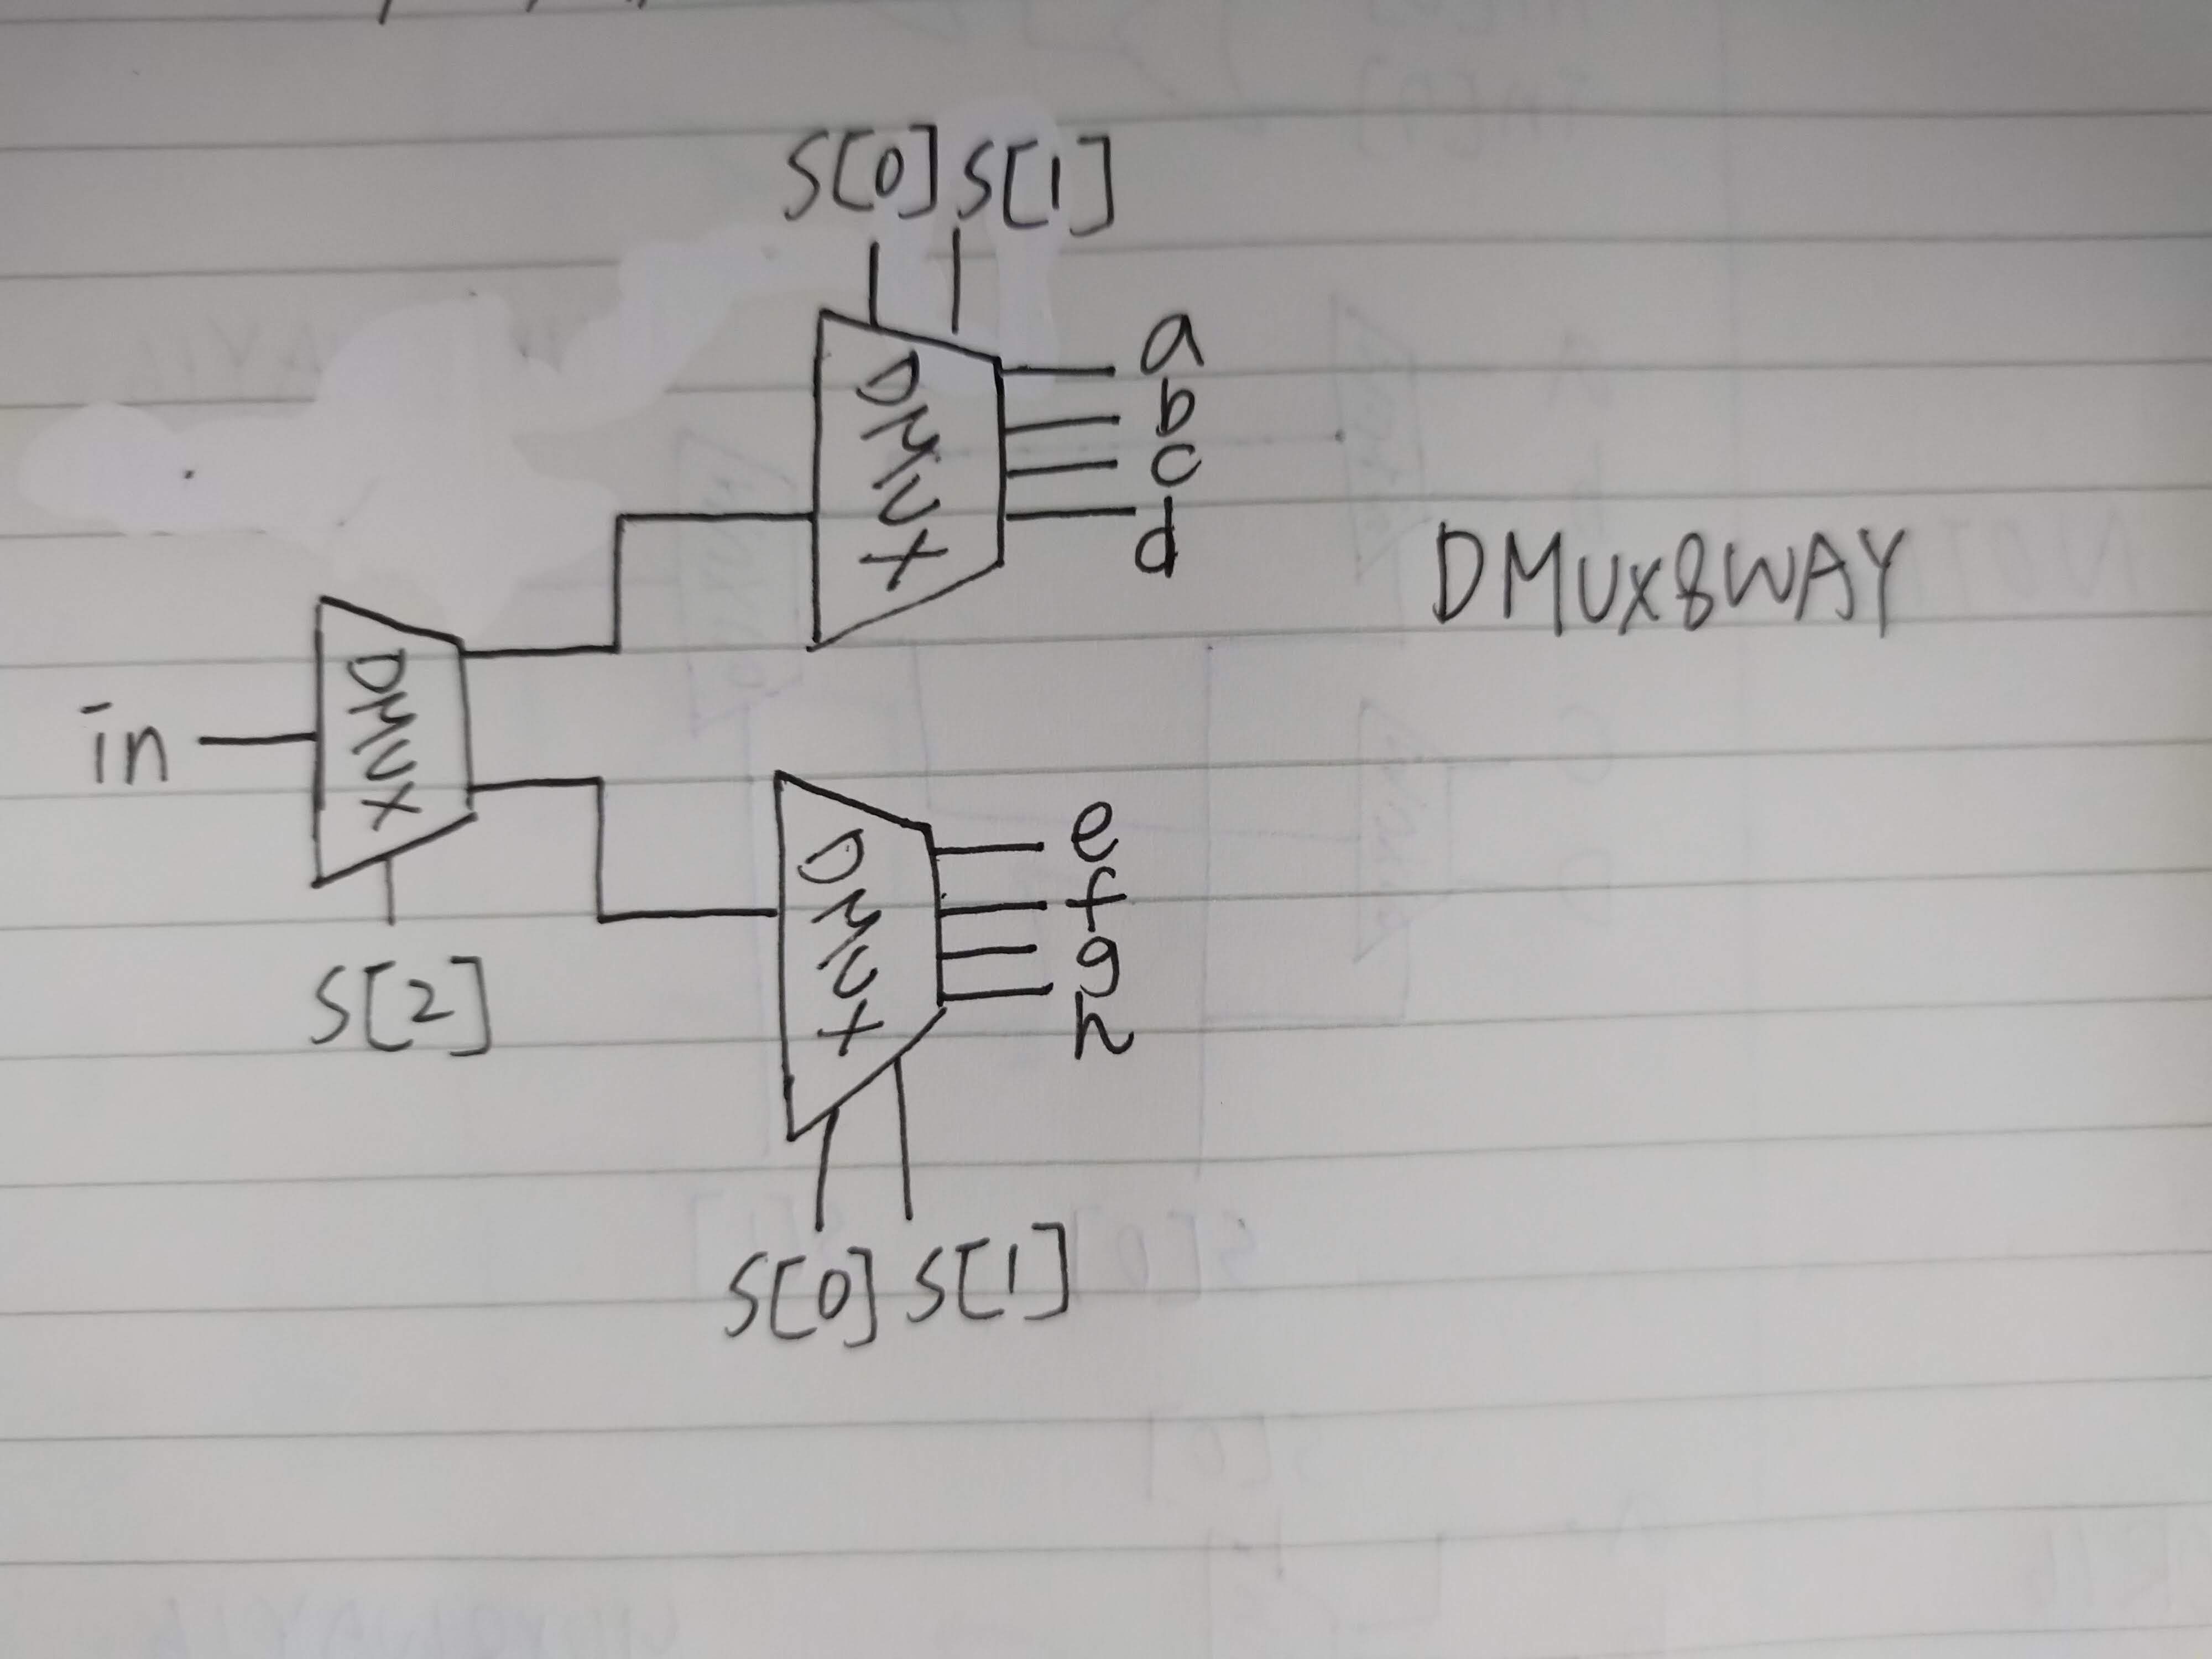 S[0] S[1]
DMUX
a
b
c
d
DMUX8WAY
in
DMUX
S[2]
DMUX
e
f
g
h
S[0] S[1]